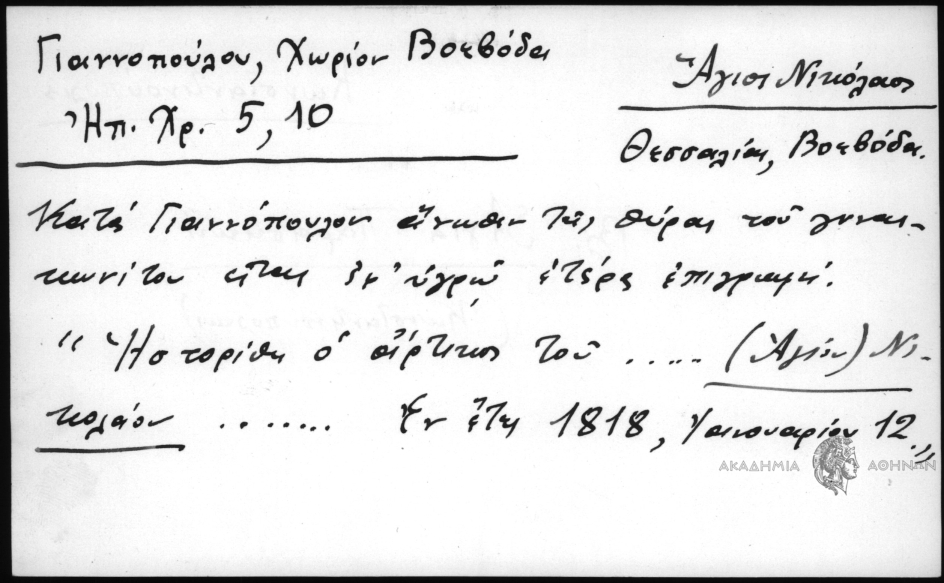 Γιαννοπούλου, Χωρίον Βοεβόδα
Ἠπ. Χρ. 5, 10
Ἅγιος Νικόλαος
Θεσσαλίας, Βοεβόδα.
Κατὰ Γιαννόπουλον ἄνωθεν τῆς θύρας τοῦ γυναι-
κωνίτου εἶναι ἐν ὑγρῷ ἑτέρα ἐπιγραφή.
"Ἡστορίθη ὁ νάρτικας τοῦ ..... (Ἁγίου) Νι-
κολάου ....... Ἐν ἔτει 1818, Ἰαννουαρίου 12."
ΑΚΑΔΗΜΙΑ ΑΘΗΝΩΝ